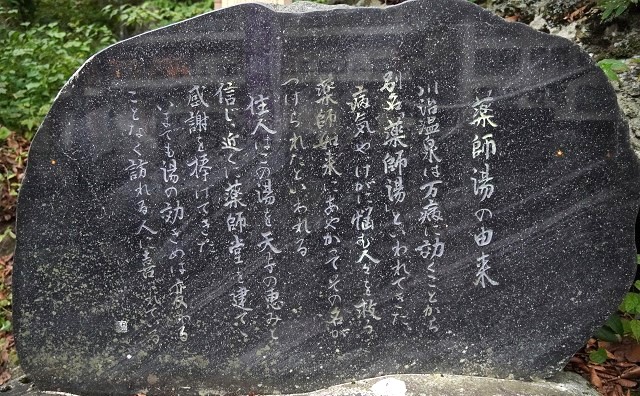 薬師湯の由来
川治温泉は万病に効くことから
別名薬師湯といわれてきた
病気やけがに悩む人々を救う
薬師如来にあやかってその名が
つけられたといわれる
住人はこの湯を天与の恵みと
信じ近くに薬師堂を建て
感謝を捧げてきた
いまでも湯の効きめは変わる
ことなく訪れる人に喜ばれている